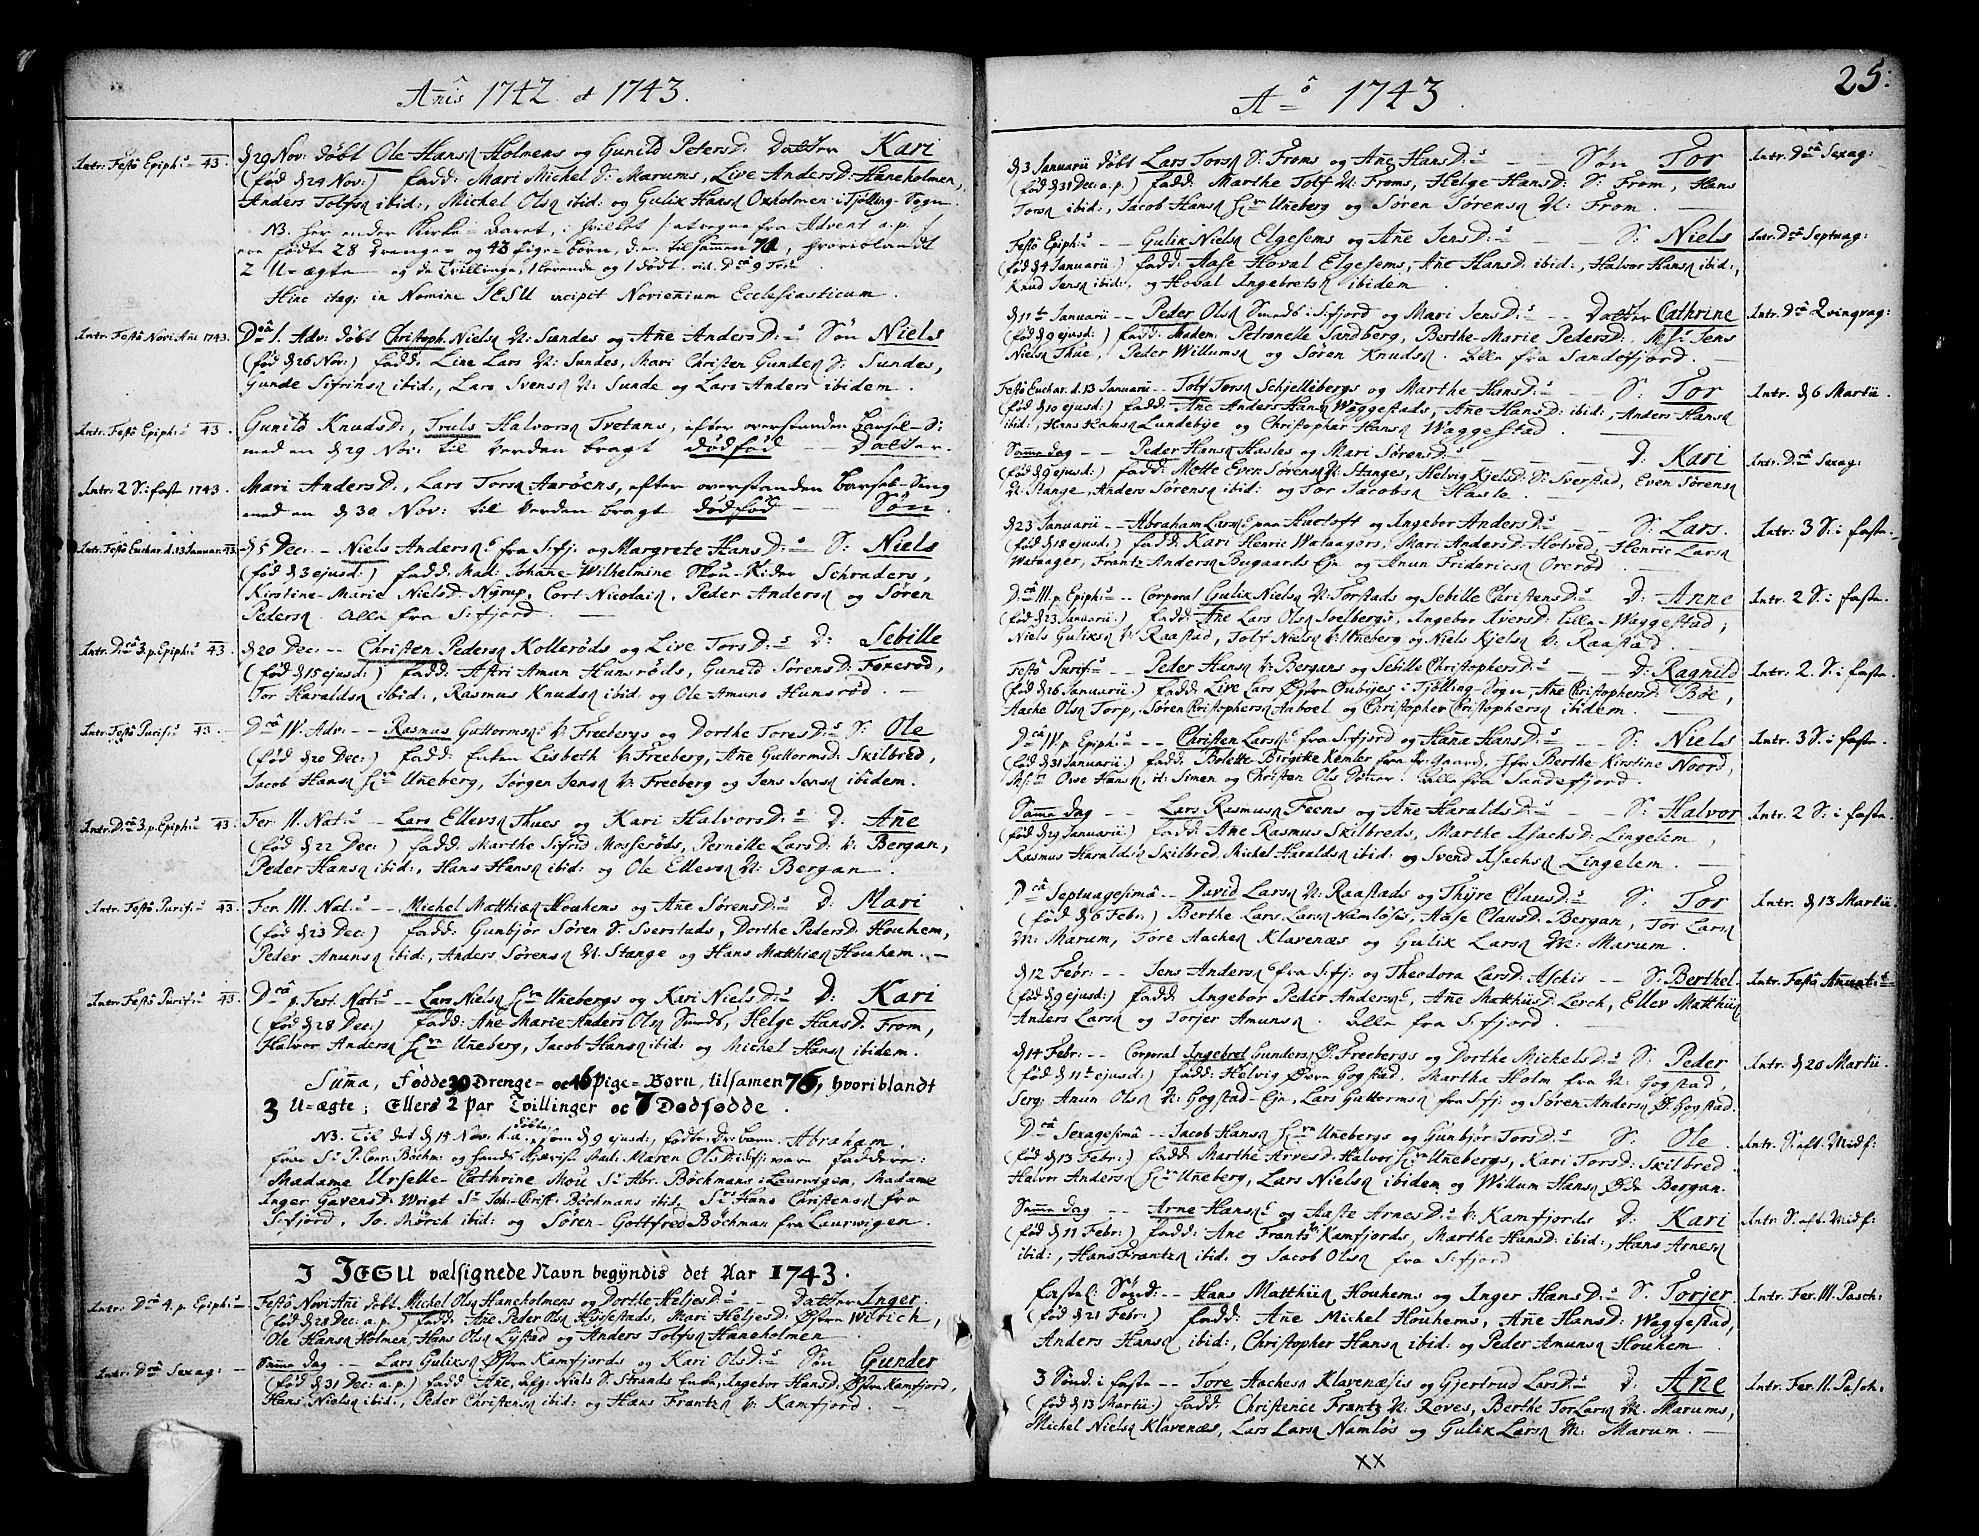 Añis 1742 et 1743.
Intr. Festô Epiph: 43. d 29 Nov: døbt Ole Hansøn Holmens og Gunild Peters D: Datter Kari
(fød d 24 Nov:) fadd: Mari Michel S: Marums, Live Anders D: Haneholmen,
Anders Tolfsøn ibid:, Michel Olsøn ibid: og Gulik Hansøn Oxholmen i Tjølling-Sogn.
NB. Her ender Kirke-Aaret, i hvilket / at regne fra Advent a.p. /
ere fødte 28 Drenge- og 43 Pige-børn, d.e. tilsammen 71, hvoriblandt
2 U-ægte og de Tvillinger, 1 levende og 1 død
Hinc itaq; in Nomine JESU incipit Noviennium Ecclesiasticum.
Intr. Festô Novi Añi 1743. Dcâ 1. Adv: døbt Christoph. Nielsøn N: Sundes og Añe Anders D: Søn Niels
(fød d 26 Nov:) fadd: Live Lars N: Sundes, Mari Christen Gundersøn S: Sundes,
Gunde Sifrins ibid:, Lars Svensøn N: Sunde og Lars Anders ibidem.
Intr. Festô Epiph: 43. Gunild Knuds D:, Truls Halvorsøn Tvetans, efter overstanden barsel-S:
med en d 29 Nov: til Verden bragt dødfød - - Datter.
Intr. 2 S: i faste 1743. Mari Anders D:, Lars Torsøn Aarøens, efter overstanden barsel-Seng
med en d 30 Nov: til Verden bragt dødfød - - Søn.
Intr. Festô Euchar. d. 13 Januar: 43. d 5 Dec: - Niels Andersøn fra S:fj: og Margrete Hans D: S: Niels
(fød d 3 ejusd:) fadd: Mad: Johañe-Wilhelmine Schraders,
Kirstine-Marie Niels D: Nyrup, Cort Nicolaisøn, Peder Andersøn og Søren
Pedersøn. Alle fra S:fjord.
Intr. Dcâ 3. p. Epiph: 43. d 20 Dec: - - Christen Pedersøn Kollerøds og Live Tors D: D: Sebille
(fød d 15 ejusd:) fadd: Astri Amun Hunsrøds, Gunild Sørens D: Forerød,
Tor Haraldsøn ibid:, Rasmus Knudsøn ibid. og Ole Amuns Hunsrød.
Intr. Festô Purif: 43. Dcâ IV. Adv. - - Rasmus Guttormsøn V: Freebergs og Dorthe Tores D: S: Ole
(fød d 20 Dec:) fadd: Enken Lisbeth V: Freeberg, Añe Guttorms D: Skilbred,
Jacob Hansøn Uñeberg, Jørgen Jensøn V: Freeberg og Jens Jensøn ibidem.
Intr. Dcâ 3. p. Epiph: 43. Fer. II. Nat: - Lars Ellevsøn Thues og Kari Halvors D: D: Añe
(fød d 22 Dec:) fadd: Marthe Sifrid Mosserøds, Pernille Lars D: V: Bergan,
Peder Hansøn ibid:, Hans Hansøn ibid: og Ole Ellevsøn N: Bergan.
Intr. Festô Purif: 43. Fer. III. Nat: - Michel Matthisøn Houhems og Añe Sørens D: D: Mari
(fød d 23 Dec:) fadd: Gunbjør Søren S: Sverstads, Dorthe Peders D: Houhem,
Peder Amunsøn ibid:, Anders Sørensøn N: Stange og Hans Matthisøn Houhem.
Intr. Festô Purif: 43. Dcâ p. Fest. Nat: - - Lars Nielsøn Uñebergs og Kari Niels D: D: Kari
(fød d 28 Dec:) fadd: Añe Marie Anders Olsøn Smeds, Helge Hans D: From,
Halvor Andersøn Uñeberg, Jacob Hansøn ibid: og Michel Hansøn ibidem.
Suma, Fødde 30 Drenge- oc 46 Pige-Børn, tilsamen 76, hvoriblandt
3 U-ægte; Ellers 2 Par Tvillinger oc 7 Dødfødde.
NB. Til det d 15 Nov. h.a. døbte, som d 9 ejusd:, fødte barn. Abraham
Maren Ols D: vare faddere:
Madame Urselle-Cathrine Mou, Sr Abr. Bøchmans i Laurwigen, Madame
Inger Gavens D: Wrigt Sr Joh: Christ: Bøchmans ibid. Sr Hans Christensøn fra
S:fjord, Jo. Mørch ibid: og Søren-Gottfred Bøchman fra Laurwigen.
I JESU vælsignede Navn begyndis det Aar 1743.
Intr: Dcâ 4. p. Epiph: Festô Novi Añi døbt Michel Olsøn Haneholmens og Dorthe Heljes D: - - Datter Inger.
(fød d 28 Dec: a.p.) fadd: Añe Peder Olsøn Hugestads, Mari Heljes D: Østvn Wirich,
Ole Hansøn Holmen, Hans Olsøn Lystad og Anders Tolfsøn Haneholmen.
Intr: Dcâ Sexag: Samme dag - - Lars Guliksøn Østvn Kamfjords og Kari Ols D: Søn Gunder
(fød d 31 Dec: a.p.) fadd Añe, afg: Niels S. Strands Enke, Ingebor Hans D: Østvn Kamfjord,
Hans Nielsøn ibid:, Peder Christensøn ibid: og Hans Frantzøn V: Kamfjord.
Aô 1743. 25:
d 3 Januarii døbt Lars Torsøn S: Froms og Añe Hans D: - - Søn Tor Intr. Dcâ Sexag:
(fød d 31 Dec: a.p.) fadd: Marthe Tolf N: Froms, Helge Hans D: S: From, Hans
Torsøn ibid:, Jacob Hansøn Uñeberg og Søren Sørensøn N: From.
Festô Epiph: - - Gulik Nielsøn Elgesems og Añe Jens D: S: Niels Intr. Dcâ Septuag:
(fød d 4 Januarii) fadd: Aase Hoval Elgesems, Añe Hans D: ibid:, Halvor Hansøn ibid:,
Knud Jensøn ibid:, og Hoval Ingebretsøn ibidem.
d 11te Januarii - - Peder Olsøn Smeds i S:fjord og Mari Jens D: - - Datter Cathrine Intr. Dcâ Qvinqvag:
(fød d 9 ejusd:) fadd: Madem: Petronelle Sandberg, Berthe-Marie Peders D: Jens
Nielsøn Thue, Peder Willumsøn og Søren Knudsøn. Alle fra Sandefjord.
Festô Euchar. d. 13 Januarii - - Tolf Torsøn Schjellibergs og Marthe Hans D: S: Tor Intr. d 6 Martii.
(fød d 10 ejusd:) fadd: Añe Anders Hansøn Waggestads, Añe Hans D: ibid:, Anders Hansøn
ibid:, Hans Hansøn Lundebye og Christopher Hansøn Waggestad.
Samme dag - - Peder Hansøn Hasles og Mari Sørens D: - - D: Kari Intr. Dcâ Sexag:
(fød d 9 ejusd:) fadd: Mette Even Sørensøn N: Stanges, Helvig Kjels D: S: Sverstad, Even Sørensøn
N: Stange, Anders Sørensøn ibid: og Tor Jacobsøn Hasle.
d 23 Januarii - - Abraham Larsøn paa Huetoft og Ingebor Anders D: - - S: Lars. Intr. 3 S: i faste.
(fød d 18 ejusd:) fadd: Kari Henric Wataagers, Mari Anders D: Hotved, Henric Larsøn
Wataager, Frantz Andersøn Bugaards Ejn og Amun Fridericsøn Orerød.
Dcâ III. p. Epiph: - - Corporal Gulik Nielsøn N: Torstads og Sebille Christens D: D: Anne Intr. 2 S: i faste.
(fød d 23 Januarii.) fadd: Añe Lars Olsøn Soelbergs, Ingebor Ivers D: Lille-Waggestad;
Niels Guliksøn V: Raastad, Tolf Nielsøn V: Uñeberg og Niels Kjelsøn V: Raastad.
Festô Purif: - - Peder Hansøn V: Bergans og Sebille Christophers D: - - D: Ragnild Intr. 2. S: i faste.
(fød d 26 Januarii) fadd: Live Lars Østvn Ouбyes, i Tjølling-Sogn, Añe Christophers D: Bøe,
Aache Olsøn Torp, Søren Christophersøn Aaboel og Christopher Christophersøn ibidem.
Dcâ IV. p. Epiph: - - Christen Larsøn fra S:fjord og Haña Hans D: - - S: Niels Intr. 3 S: i faste.
(fød d 31 Januarii.) fadd: Bolette Birgitte Kemler fra Pr: Gaard, Berthe Kirstine Noord,
Ove Hansøn, it: Simen og Christen Ols Sønner. Alle fra Sandefjord.
Samme dag - - Lars Rasmusøn Feens og Añe Haralds D: S: Halvor Intr. 2 S: i faste.
(fød d 29 Januarii) fadd: Añe Rasmus Skilbreds, Marthe Isachs D: Lingelem,
Rasmus Haraldsøn Skilbred, Michel Haraldsøn ibid: og Svend Isachsøn Lingelem.
Dcâ Septuagesimâ - - David Larsøn N: Raastads og Thyre Claus D: S: Tor Intr. d 13 Martii.
(fød d 6 Febr:) Berthe Lars Larsøn Namløsis, Aase Claus D: Bergan, Tor Larsøn
M: Marum, Tore Aachesøn Klavenæs og Gulik Larsøn M: Marum.
d 12 Febr: - - Jens Andersøn fra S:fj: og Theodora Lars D: Aschis - - S: Berthel. Intr. Festô Anunt:
(fød d 9 ejusd:) fadd: Ingebor Peder Andersøn, Añe Matthiis D: Lerch, Ellev Matthiisøn
Anders Larsøn og Torjer Amunsøn. Alle fra S:fjord.
d 14 Febr: - - Corporal Ingebret Gundersøn Ø: Freebergs og Dorthe Michels D: S: Peder Intr. d 20 Martii.
(fød d 11te ejusd:) fadd: Helvig Østvn Gogstad, Martha Holm fra N: Gogstad,
Serg: Amun Olsøn N: Gogstad-Ejn, Lars Guttormsøn fra S:fj: og Søren Andersøn Ø: Gogstad.
Dcâ Sexagesimâ - - Jacob Hansøn Uñebergs og Gunbjør Tors D: S: Ole Intr. S. aft. Midf:
(fød d 13 Febr:) fadd: Marthe Arves D: Halvor Uñebergs, Kari Tors D: Skilbred
Halvor Andersøn Uñeberg, Lars Nielsøn ibidem og Willum Hansøn Øde Bergan.
Samme dag - - Arne Hansøn og Aaste Arnes D: V: Kamfjords D: Kari Intr. S. aft. Midf:
(fød d 11 Febr:) fadd: Añe Frantz V: Kamfjords, Marthe Hans D: ibid:, Hans Arnesøn
ibid:, Hans Frantzøn ibid: og Jacob Olsøn fra S:fjord
Fastel: Sønd: - - Hans Matthiisøn Houhems og Inger Hans D: S: Torjer. Intr. Fer. III. Pasch:
(fød d 21 Febr:) fadd: Añe Michel Houhems, Añe Hans D: Waggestad,
Anders Hansøn ibid:, Christopher Hansøn ibid: og Peder Amunsøn Houhem
3 Sønd. i faste - - Tore Aachesøn Klavenæsis og Gjertrud Lars D: D: Añe Intr. Fer. II. Pasch:
(fød d 13 Martii) fadd: Christence Frantz N: Roves, Berthe Tor Larsøn M. Marums,
Michel Nielsøn Klavenæs, Lars Larsøn Namløs og Gulik Larsøn M: Marum.
XX